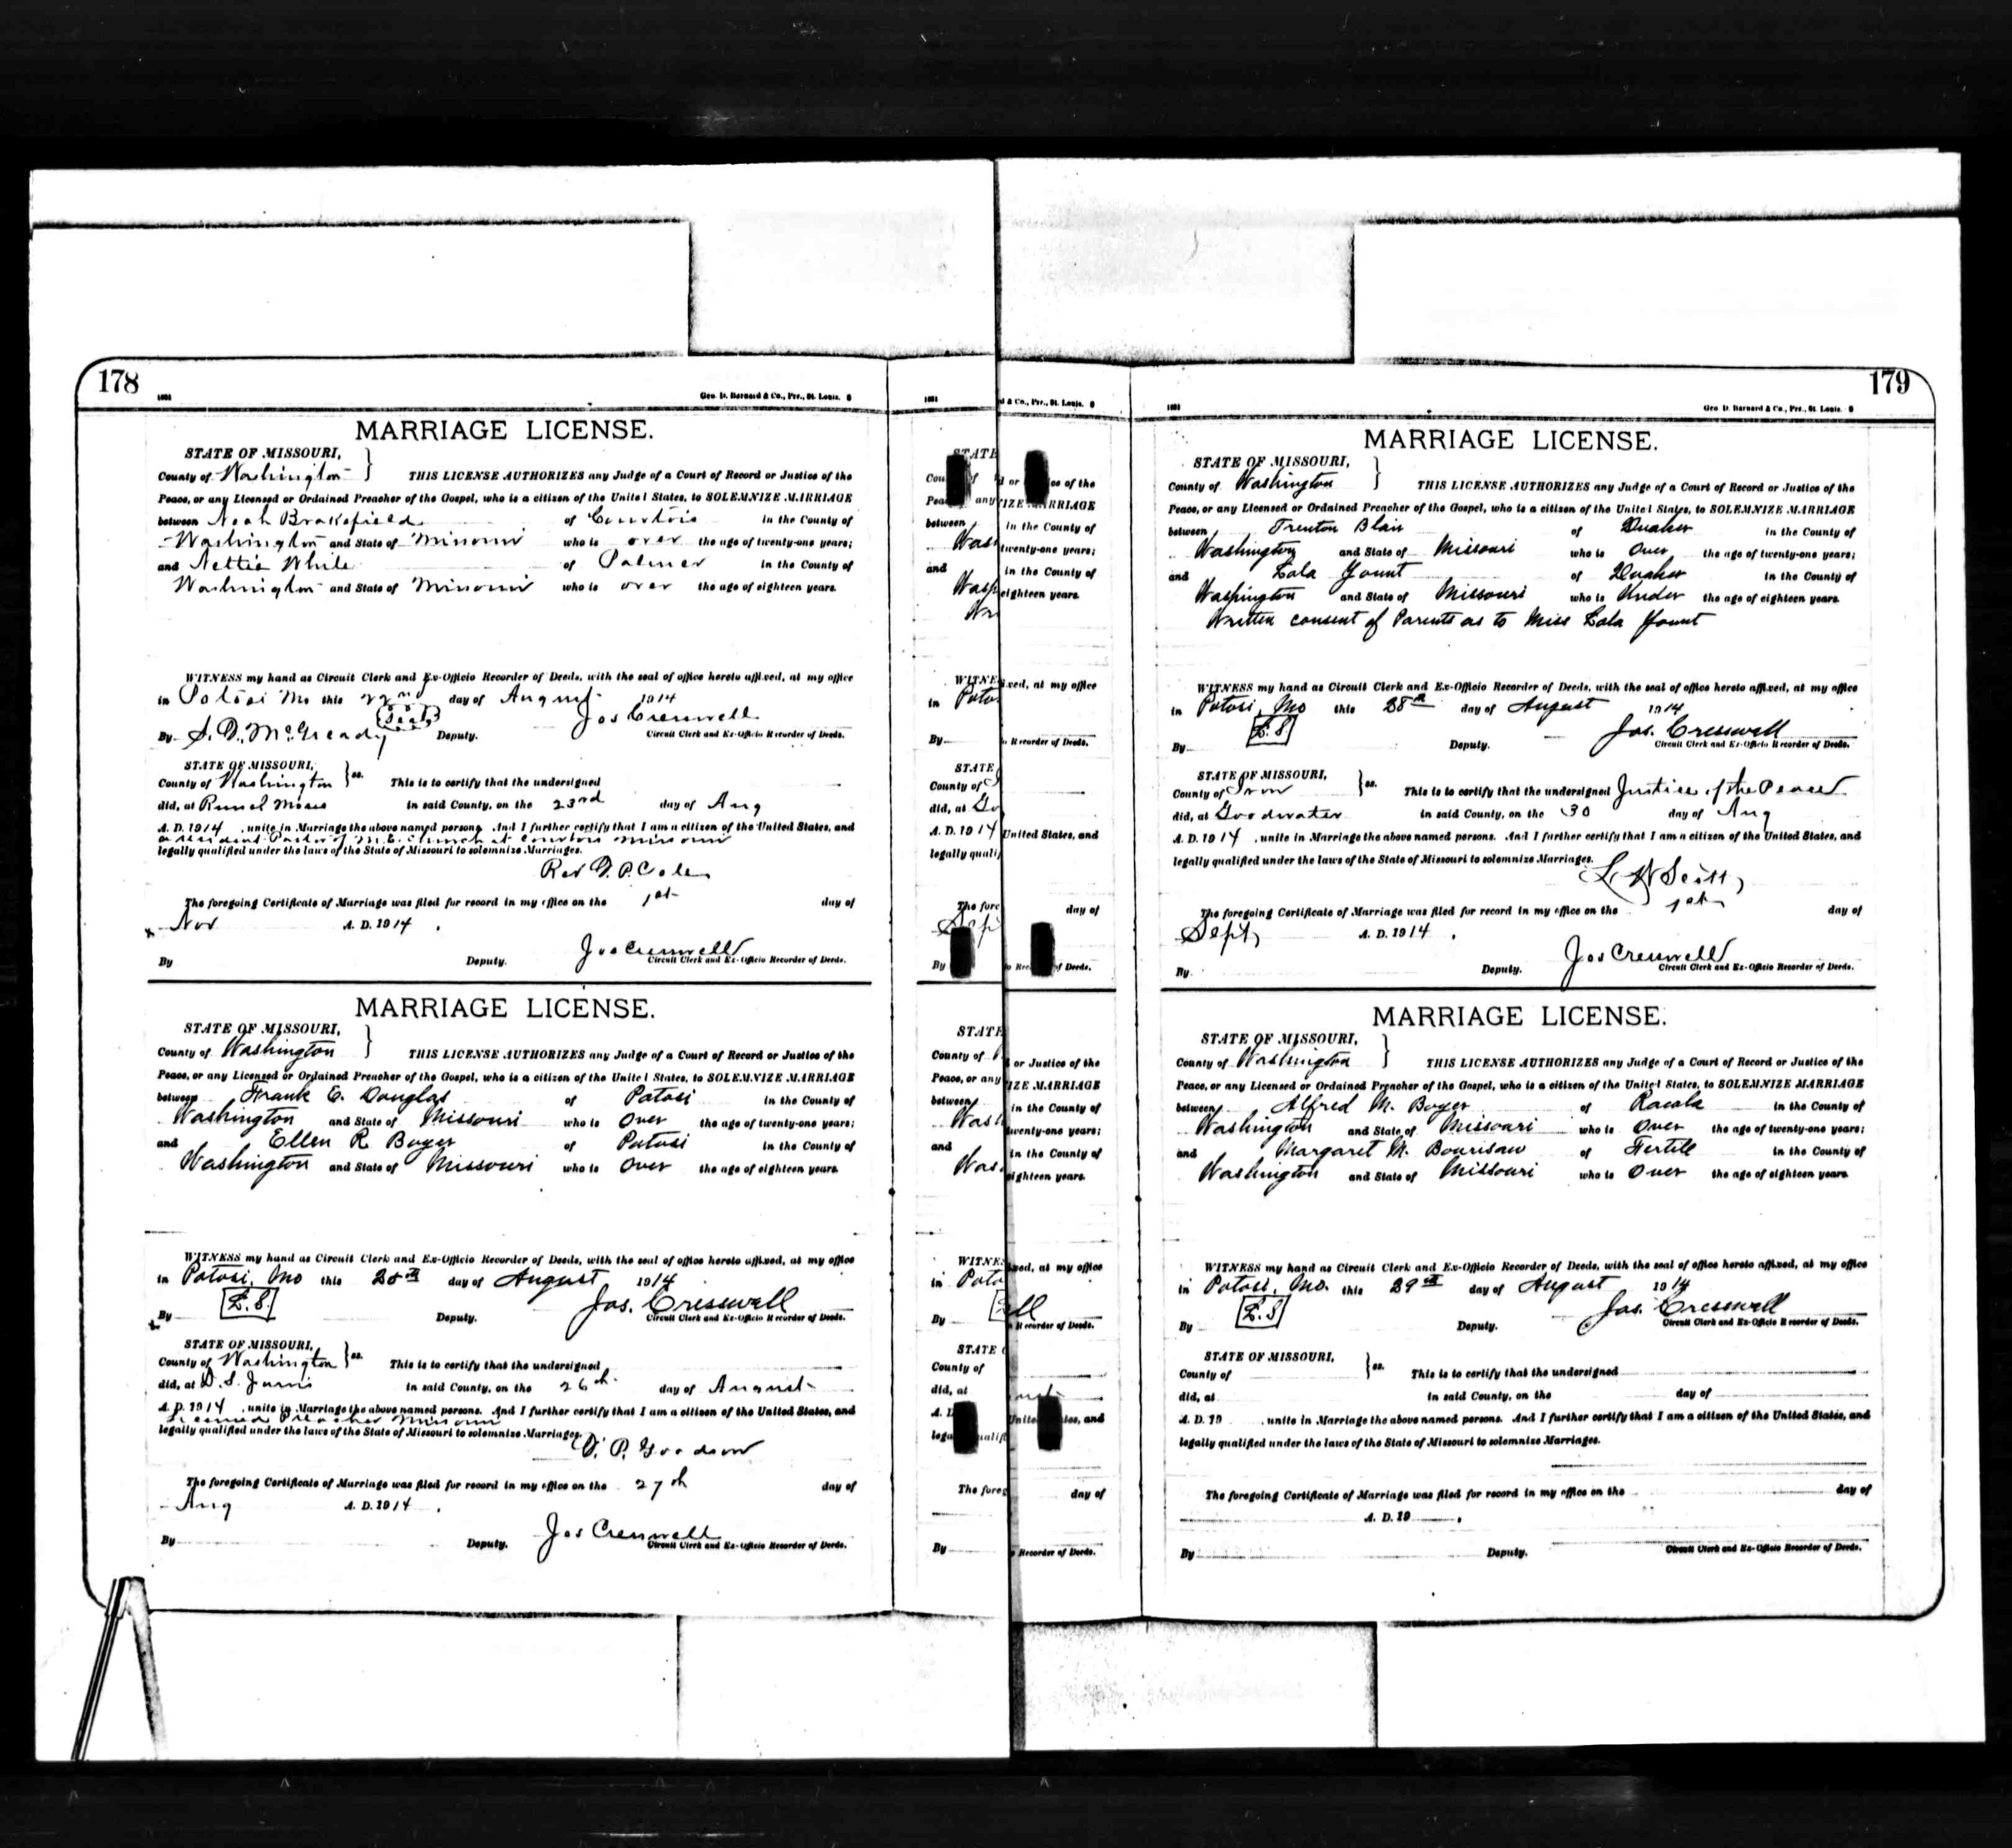 178
1081 Geo. D. Barnard & Co., Prs., St. Louis. 8
MARRIAGE LICENSE.
STATE OF MISSOURI,
County of Washington } THIS LICENSE AUTHORIZES any Judge of a Court of Record or Justice of the
Peace, or any Licensed or Ordained Preacher of the Gospel, who is a citizen of the United States, to SOLEMNIZE MARRIAGE
between Noah Brakefield of Courtois in the County of
Washington and State of Missouri who is over the age of twenty-one years;
and Nettie White of Palmer in the County of
Washington and State of Missouri who is over the age of eighteen years.
WITNESS my hand as Circuit Clerk and Ex-Officio Recorder of Deeds, with the seal of office hereto affixed, at my office
in Potosi Mo this 22nd day of August 1914
(Seal) Jos Cresswell
By S. D. McGready Deputy. Circuit Clerk and Ex-Officio Recorder of Deeds.
STATE OF MISSOURI,
County of Washington } ss. This is to certify that the undersigned
did, at in said County, on the 23rd day of Aug
A. D. 1914, unite in Marriage the above named persons. And I further certify that I am a citizen of the United States, and
a resident Pastor of M.E. Church at Courtois Missouri
legally qualified under the laws of the State of Missouri to solemnize Marriages.
Rev G. P. Cole
The foregoing Certificate of Marriage was filed for record in my office on the 1st day of
Nov A. D. 1914.
Jos Cresswell
By Deputy. Circuit Clerk and Ex-Officio Recorder of Deeds.
MARRIAGE LICENSE.
STATE OF MISSOURI,
County of Washington } THIS LICENSE AUTHORIZES any Judge of a Court of Record or Justice of the
Peace, or any Licensed or Ordained Preacher of the Gospel, who is a citizen of the United States, to SOLEMNIZE MARRIAGE
between Frank C. Douglas of Potosi in the County of
Washington and State of Missouri who is Over the age of twenty-one years;
and Ellen R Boyer of Potosi in the County of
Washington and State of Missouri who is Over the age of eighteen years.
WITNESS my hand as Circuit Clerk and Ex-Officio Recorder of Deeds, with the seal of office hereto affixed, at my office
in Potosi, Mo this day of August 1914
L.S. Jos. Cresswell
By Deputy. Circuit Clerk and Ex-Officio Recorder of Deeds.
STATE OF MISSOURI,
County of Washington } ss. This is to certify that the undersigned
did, at D. S. Jarvis in said County, on the 26th day of August
A. D. 1914, unite in Marriage the above named persons. And I further certify that I am a citizen of the United States, and
Licensed Preacher Missouri
legally qualified under the laws of the State of Missouri to solemnize Marriages.
P. Goodson
The foregoing Certificate of Marriage was filed for record in my office on the 27th day of
Aug A. D. 1914.
Jos Cresswell
By Deputy. Circuit Clerk and Ex-Officio Recorder of Deeds.
179
1081 Geo. D. Barnard & Co., Prs., St. Louis. 8
MARRIAGE LICENSE.
STATE OF MISSOURI,
County of Washington } THIS LICENSE AUTHORIZES any Judge of a Court of Record or Justice of the
Peace, or any Licensed or Ordained Preacher of the Gospel, who is a citizen of the United States, to SOLEMNIZE MARRIAGE
between Trenton Blair of Quaker in the County of
Washington and State of Missouri who is Over the age of twenty-one years;
and Lola Yount of Quaker in the County of
Washington and State of Missouri who is Under the age of eighteen years.
Written consent of Parents as to Miss Lola Yount
WITNESS my hand as Circuit Clerk and Ex-Officio Recorder of Deeds, with the seal of office hereto affixed, at my office
in Potosi, Mo this 28th day of August 1914
L.S. Jos. Cresswell
By Deputy. Circuit Clerk and Ex-Officio Recorder of Deeds.
STATE OF MISSOURI,
County of Iron } ss. This is to certify that the undersigned Justice of the Peace
did, at Goodwater in said County, on the 30 day of Aug
A. D. 1914, unite in Marriage the above named persons. And I further certify that I am a citizen of the United States, and
legally qualified under the laws of the State of Missouri to solemnize Marriages.
L W Scott
The foregoing Certificate of Marriage was filed for record in my office on the 1st day of
Sept, A. D. 1914.
Jos Cresswell
By Deputy. Circuit Clerk and Ex-Officio Recorder of Deeds.
MARRIAGE LICENSE.
STATE OF MISSOURI,
County of Washington } THIS LICENSE AUTHORIZES any Judge of a Court of Record or Justice of the
Peace, or any Licensed or Ordained Preacher of the Gospel, who is a citizen of the United States, to SOLEMNIZE MARRIAGE
between Alfred M. Boyer of Racola in the County of
Washington and State of Missouri who is Over the age of twenty-one years;
and Margaret M. Bourisaw of Fertile in the County of
Washington and State of Missouri who is Over the age of eighteen years.
WITNESS my hand as Circuit Clerk and Ex-Officio Recorder of Deeds, with the seal of office hereto affixed, at my office
in Potosi, Mo. this 29th day of August 1914
L.S Jos. Cresswell
By Deputy. Circuit Clerk and Ex-Officio Recorder of Deeds.
STATE OF MISSOURI,
County of } ss. This is to certify that the undersigned
did, at in said County, on the day of
A. D. 19 , unite in Marriage the above named persons. And I further certify that I am a citizen of the United States, and
legally qualified under the laws of the State of Missouri to solemnize Marriages.
The foregoing Certificate of Marriage was filed for record in my office on the day of
A. D. 19 .
By Deputy. Circuit Clerk and Ex-Officio Recorder of Deeds.